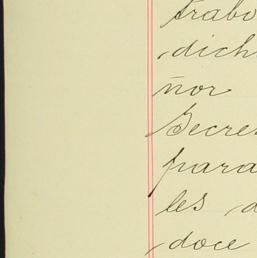 trabo
dich
ñor
Secre
para
les d
doce